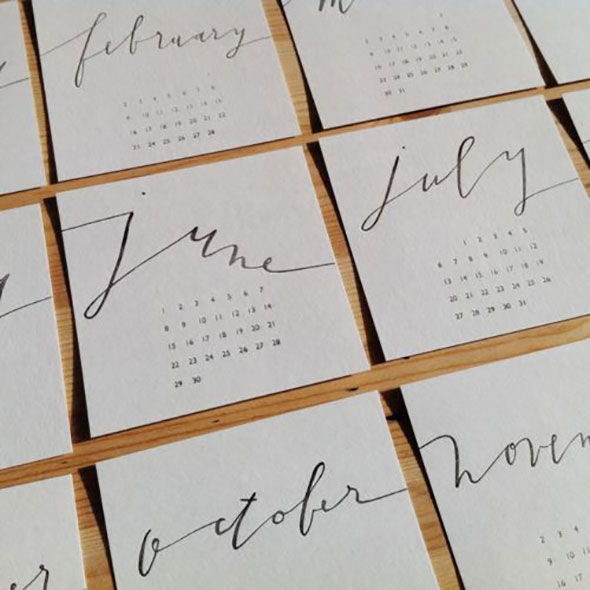 february
2 3 4 5 6 7 8
9 10 11 12 13 14 15
16 17 18 19 20 21 22
23 24 25 26 27 28
m
1
2 3 4 5 6 7 8
9 10 11 12 13 14 15
16 17 18 19 20 21 22
23 24 25 26 27 28 29
30 31
june
1 2 3 4 5 6 7
8 9 10 11 12 13 14
15 16 17 18 19 20 21
22 23 24 25 26 27 28
29 30
july
1 2 3 4 5
6 7 8 9 10 11 12
13 14 15 16 17 18 19
20 21 22 23 24 25 26
27 28 29 30 31
er
october
novem
2 3 4
9 10 11
16 17